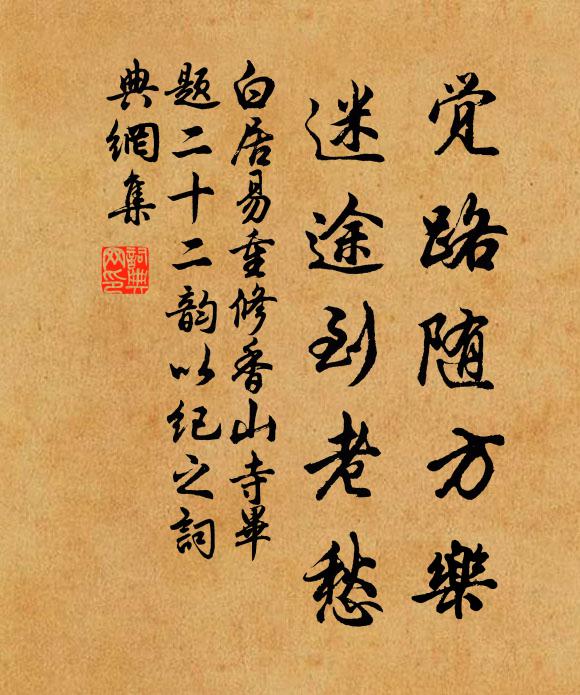 觉路随方樂
迷途到老愁
白居易重修香山寺畢
题二十二韵以纪之詞
典網集
詞典
网印